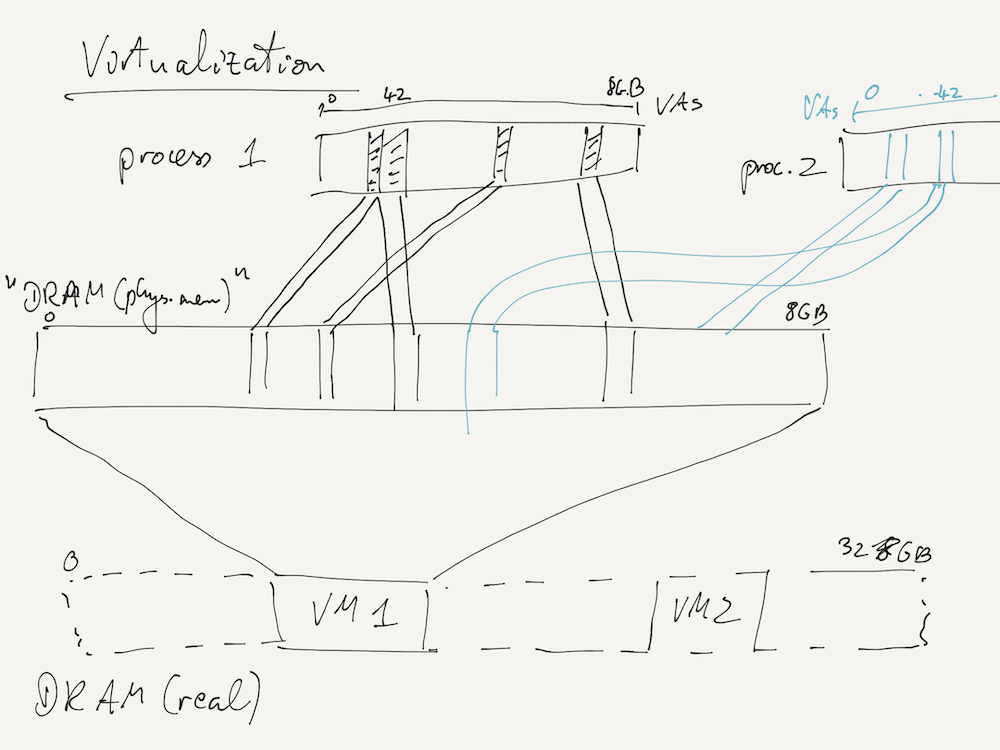 Virtualization
0 42 8GB VAs
VAs 0 42
process 1
proc. 2
"DRAM (phys. mem)"
0 8GB
0 32 GB
VM 1
VM 2
DRAM (real)